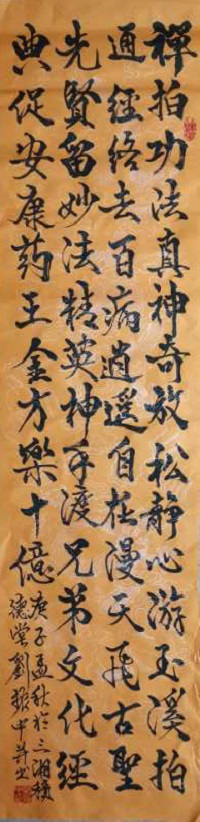 禪拍功法真神奇放松靜心游玉溪拍
通經络去百病逍遥自在漫天飛古聖
先賢留妙法精英神手渡兄弟文化經
典促安康药王金方樂十億
庚子孟秋於三湘積
德堂劉 中并书